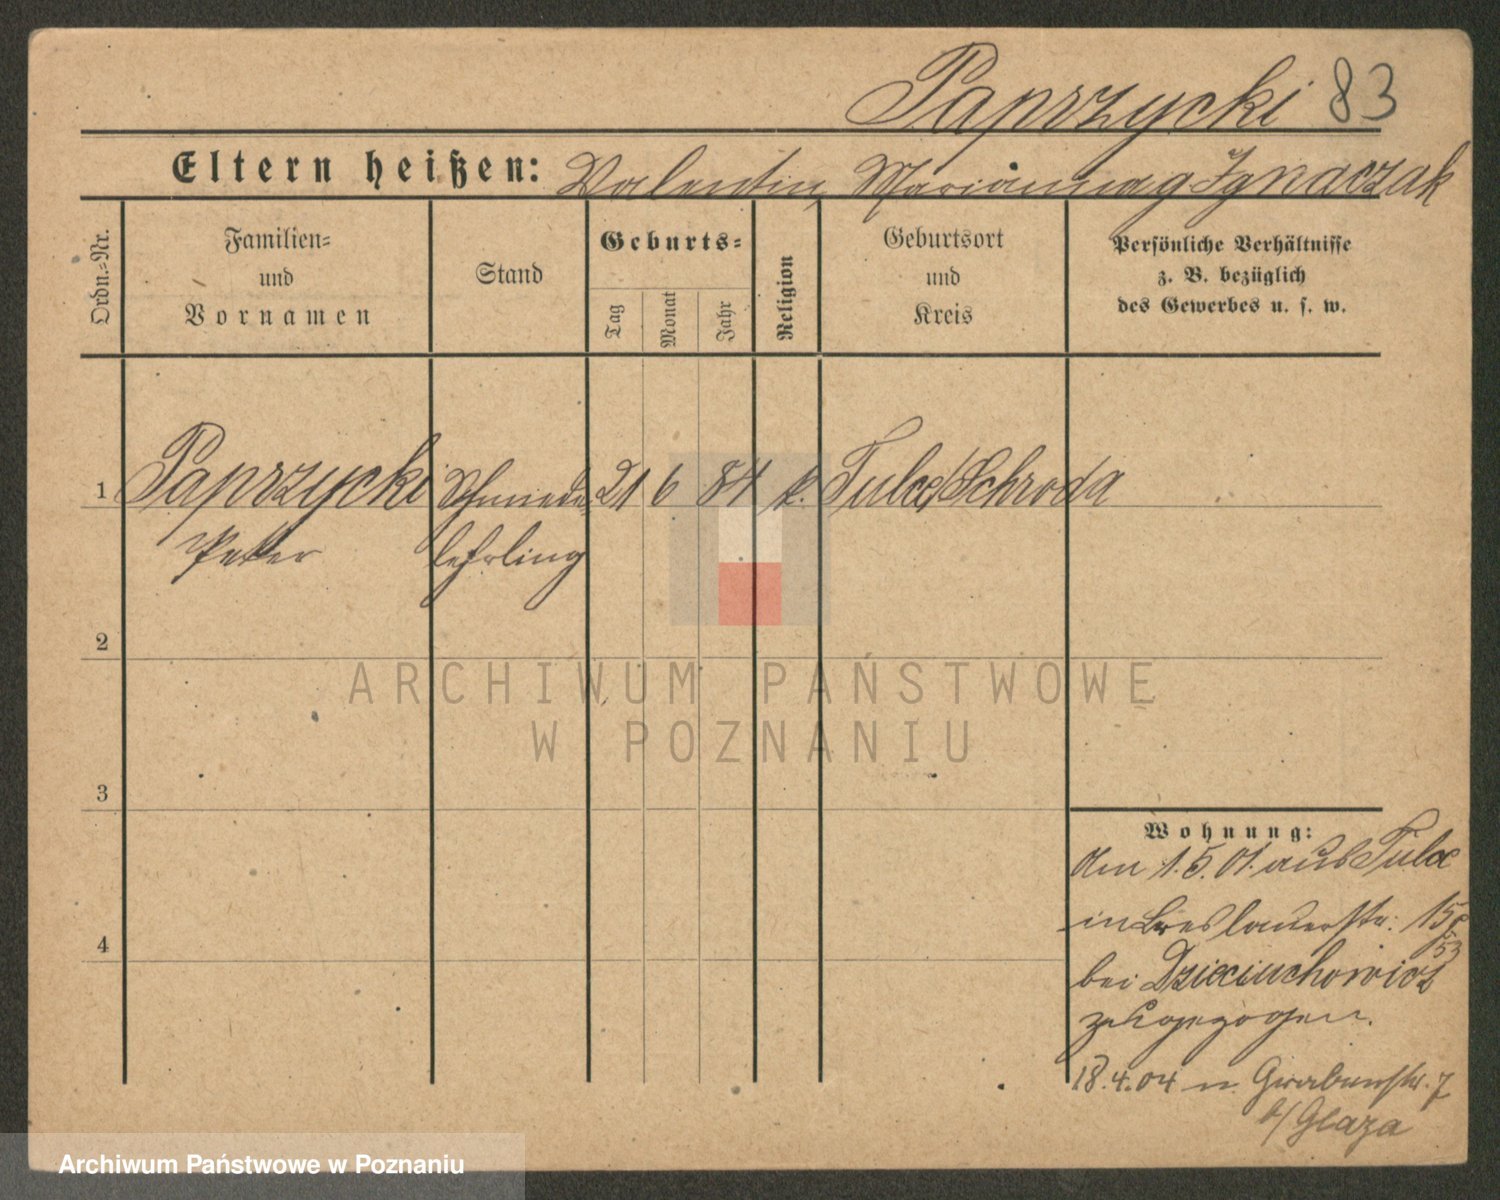 Paprzycki 83
Eltern heißen: Valentin, Marianna g. Ignaczak
Ordn.=Nr.
Familien=
und
Vornamen
Stand
Geburts=
Tag
Monat
Jahr
Religion
Geburtsort
und
Kreis
Persönliche Verhältnisse
z. B. bezüglich
des Gewerbes u. s. w.
1 Paprzycki Schmiede 21 6 84 k. Tulce/Schroda
Peter lehrling
2
ARCHIWUM PAŃSTWOWE
W POZNANIU
3
Wohnung:
Am 1.5.01. aus Tulce
in Breslauerstr: 15
bei Dzieciuchowicz
zugezogen.
18.4.04 n. Grabenstr. 7
b/ Glaza
4
Archiwum Państwowe w Poznaniu